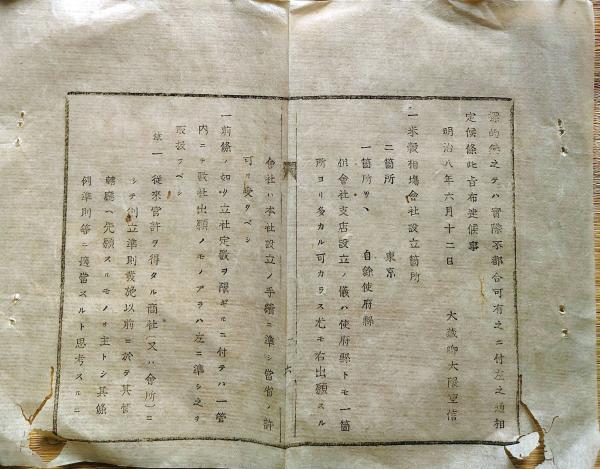 標的無之テハ實際不都合可有之ニ付左之通相
定候條此旨布達候事
明治八年六月十二日　大藏卿大隈重信
一米穀相場會社設立箇所
二箇所　東京
一箇所ツヽ　自餘使府縣
但會社支店設立ノ儀ハ使府縣トモ一箇
所ヨリ多カル可カラス尤モ右出願スル
會社ハ本社設立ノ手續ニ準シ當省ノ許
可ヲ受クベシ
一前條ノ如ク立社定數ヲ限ギルニ付テハ一管
内ニテ數社出願ノモノアラハ左ニ準シ之ヲ
取扱フベシ
第一　從來官許ヲ得タル商社(又ハ會所)ニ
シテ創立準則發施以前ニ於テ其管
轄廳ヘ先願スルモノヲ主トシ其條
例準則等ニ適當スルト思考スルニ